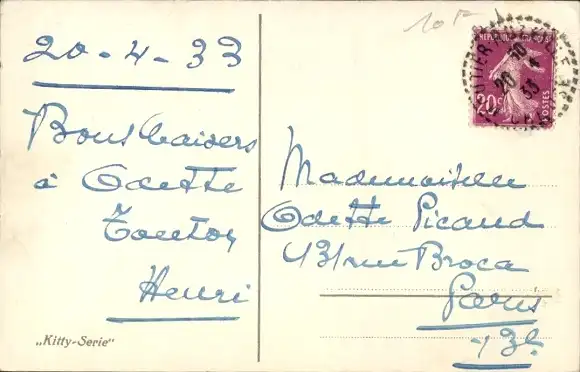 10 F
20-4-33
Bons baisers
à Odette
Tonton
Henri
„Kitty-Serie"
REPUBLIQUE
20c
POSTES
10
20 4
33
Mademoiselle
Odette Picaud
131 rue Broca
Paris
13e